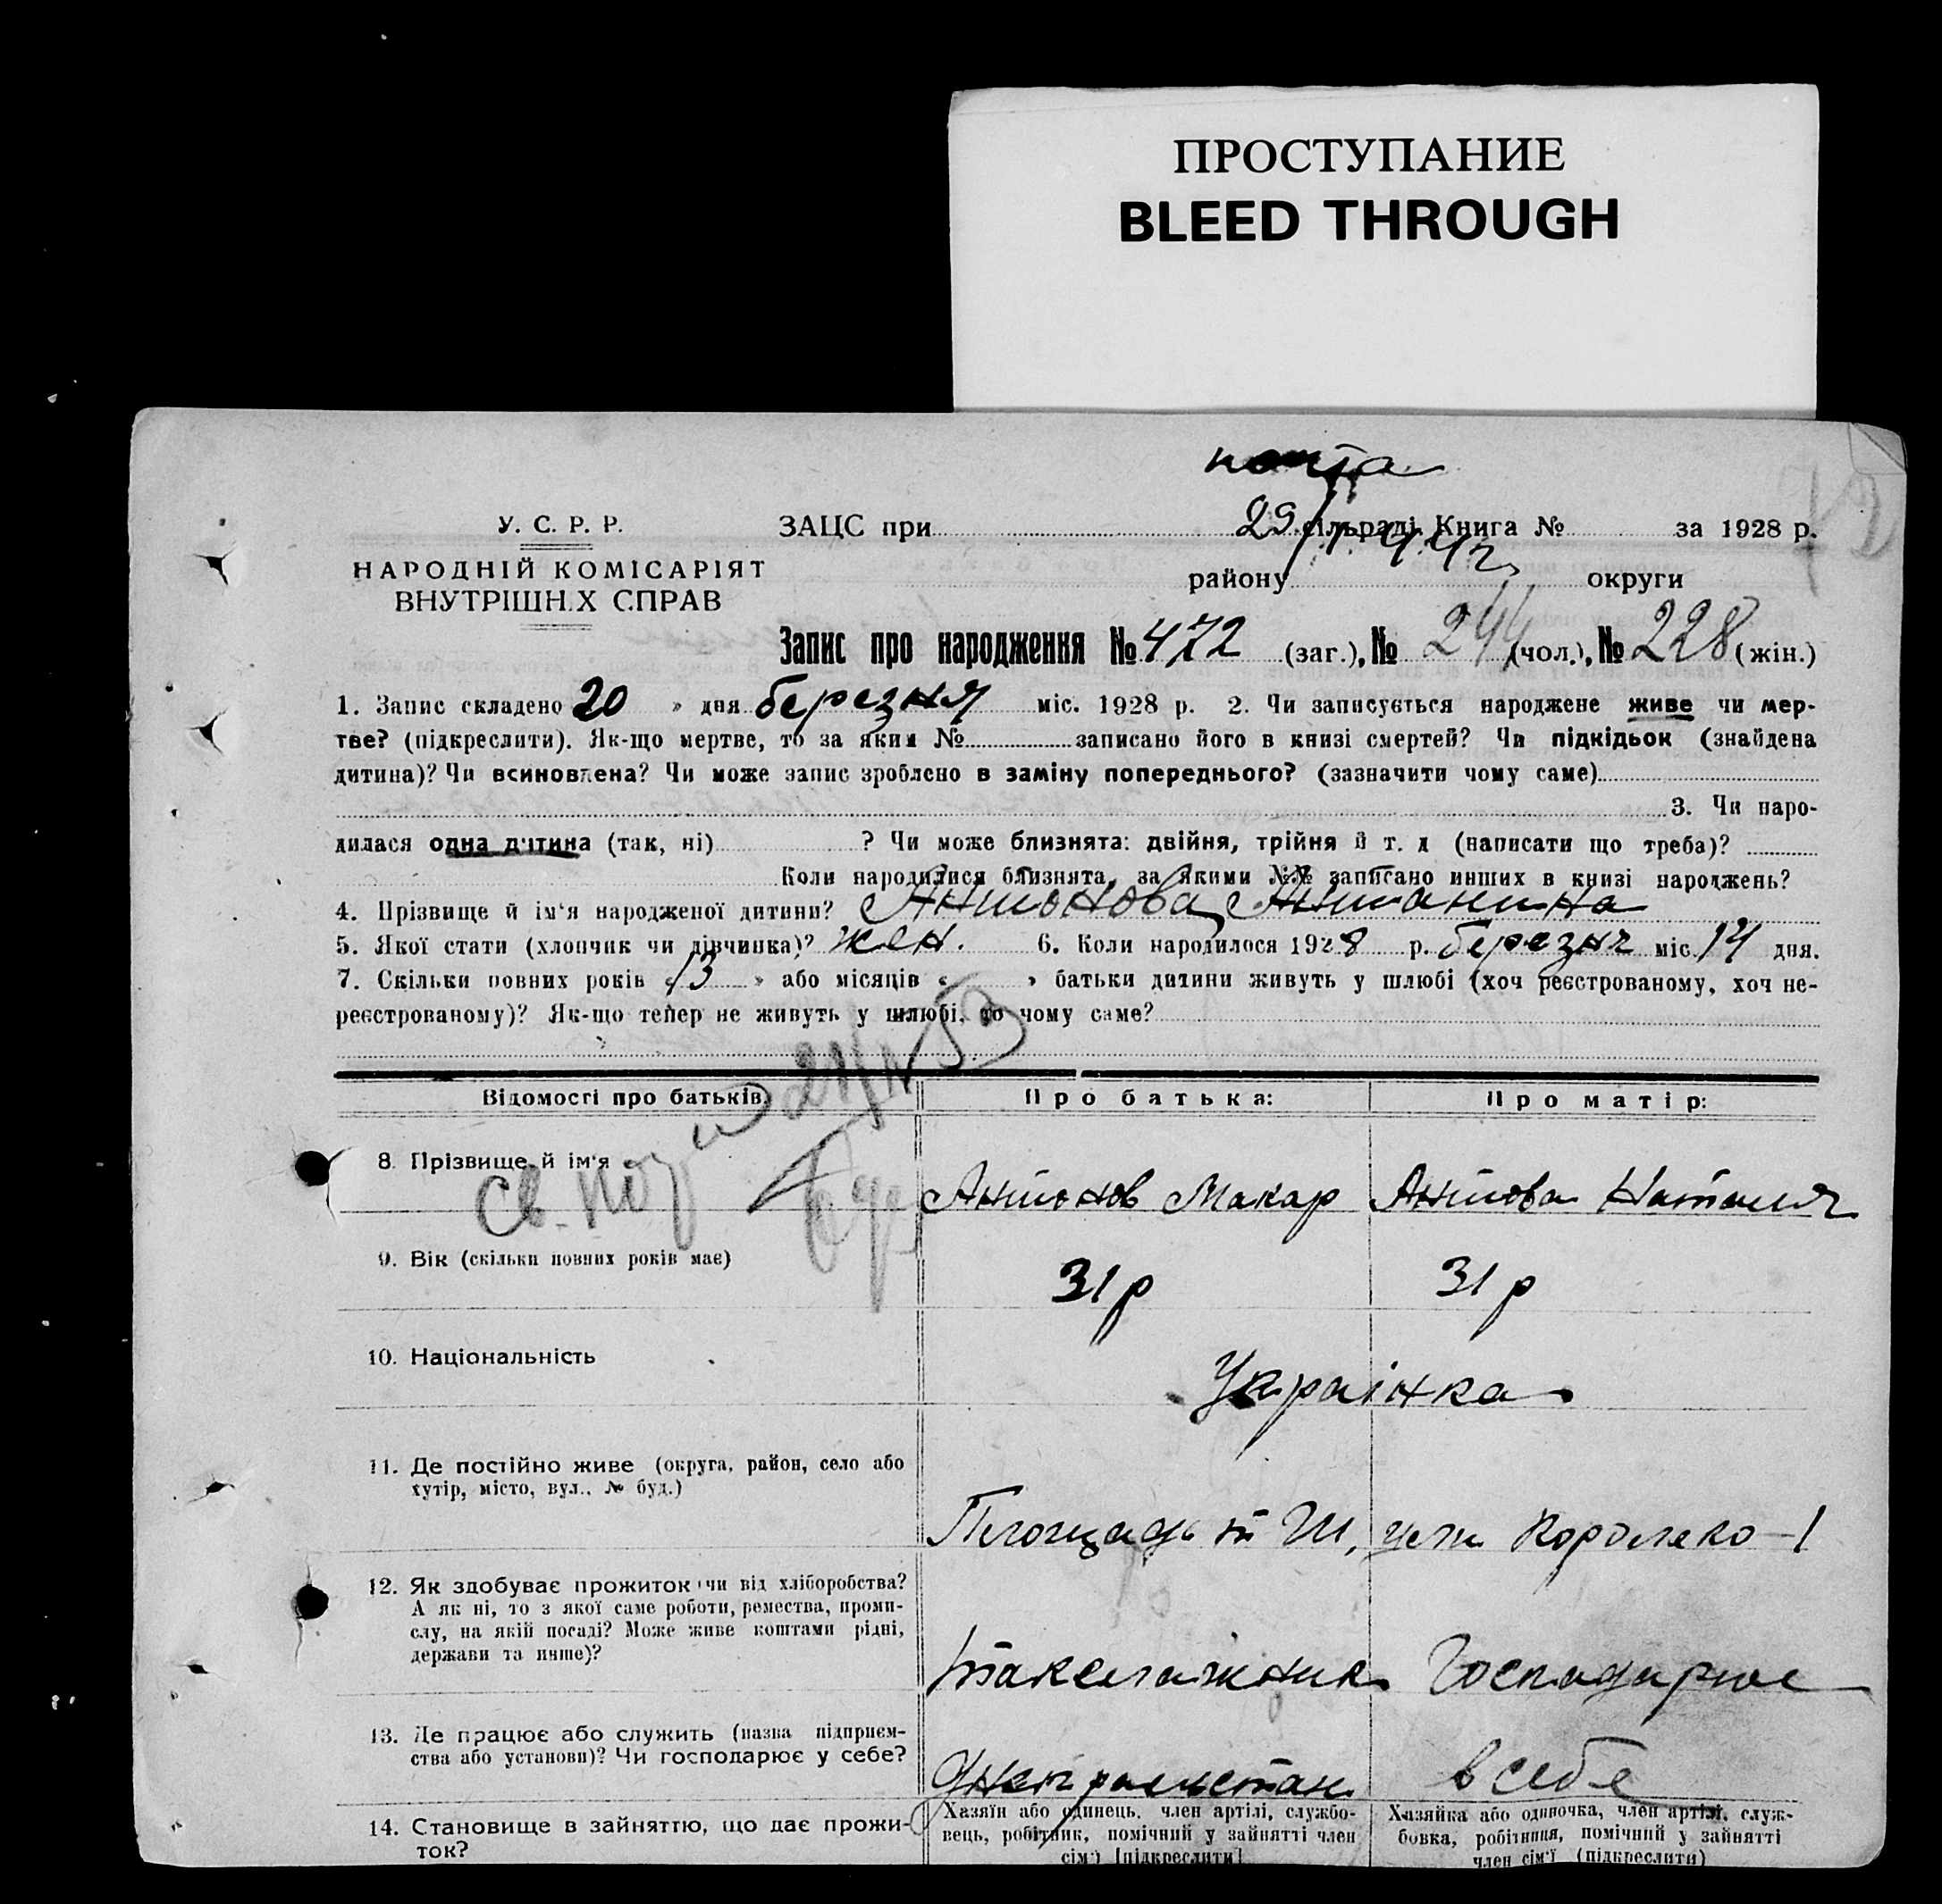 ПРОСТУПАНИЕ
BLEED THROUGH
почта
У. С. Р. Р.
ЗАЦС при 29/ сільраді Книга № за 1928 р.
НАРОДНІЙ КОМІСАРІЯТ
району округи
ВНУТРІШНІХ СПРАВ
Запис про народження № 472 (заг.), № 244 (чол.), № 228 (жін.)
1. Запис складено 20 » дня березня міс. 1928 р. 2. Чи записується народжене живе чи мер-
тве? (підкреслити). Як-що мертве, то за яким № записано його в книзі смертей? Чи підкідьок (знайдена
дитина)? Чи всиновлена? Чи може запис зроблено в заміну попереднього? (зазначити чому саме)
3. Чи наро-
дилася одна дитина (так, ні) ? Чи може близнята: двійня, трійня й т. д (написати що треба)?
Коли народилися близнята, за якими №№ записано инших в книзі народжень?
4. Прізвище й ім'я народженої дитини? Антонова Антанина
5. Якої стати (хлопчик чи дівчинка)? жен. 6. Коли народилося 1928 р. березня міс. 14 дня.
7. Скільки повних років « 13 » або місяців « » батьки дитини живуть у шлюбі (хоч реєстрованому, хоч не-
реєстрованому)? Як-що тепер не живуть у шлюбі, то чому саме?
Відомості про батьків Про батька: Про матір:
8. Прізвище й ім'я Антонов Макар Антова Наталия
Св.
9. Вік (скільки повних років має) 31 р 31 р
10. Національність Українка
11. Де постійно живе (округа, район, село або
хутір, місто, вул., № буд.)
Площадь Ш, Короленко - 1
12. Як здобуває прожиток чи від хліборобства?
А як ні, то з якої саме роботи, ремества, проми-
слу, на якій посаді? Може живе коштами рідні,
держави та инше)?
такелажник Господарює
13. Де працює або служить (назва підприєм-
ства або установи)? Чи господарює у себе?
Днепрельстан в себе
14. Становище в зайняттю, що дає прожи-
ток?
Хазяїн або одинець, член артілі, службо-
вець, робітник, помічний у зайнятті член
сім'ї (підкреслити)
Хазяйка або одиночка, член артілі, служ-
бовка, робітниця, помічний у зайнятті
член сім'ї (підкреслити)